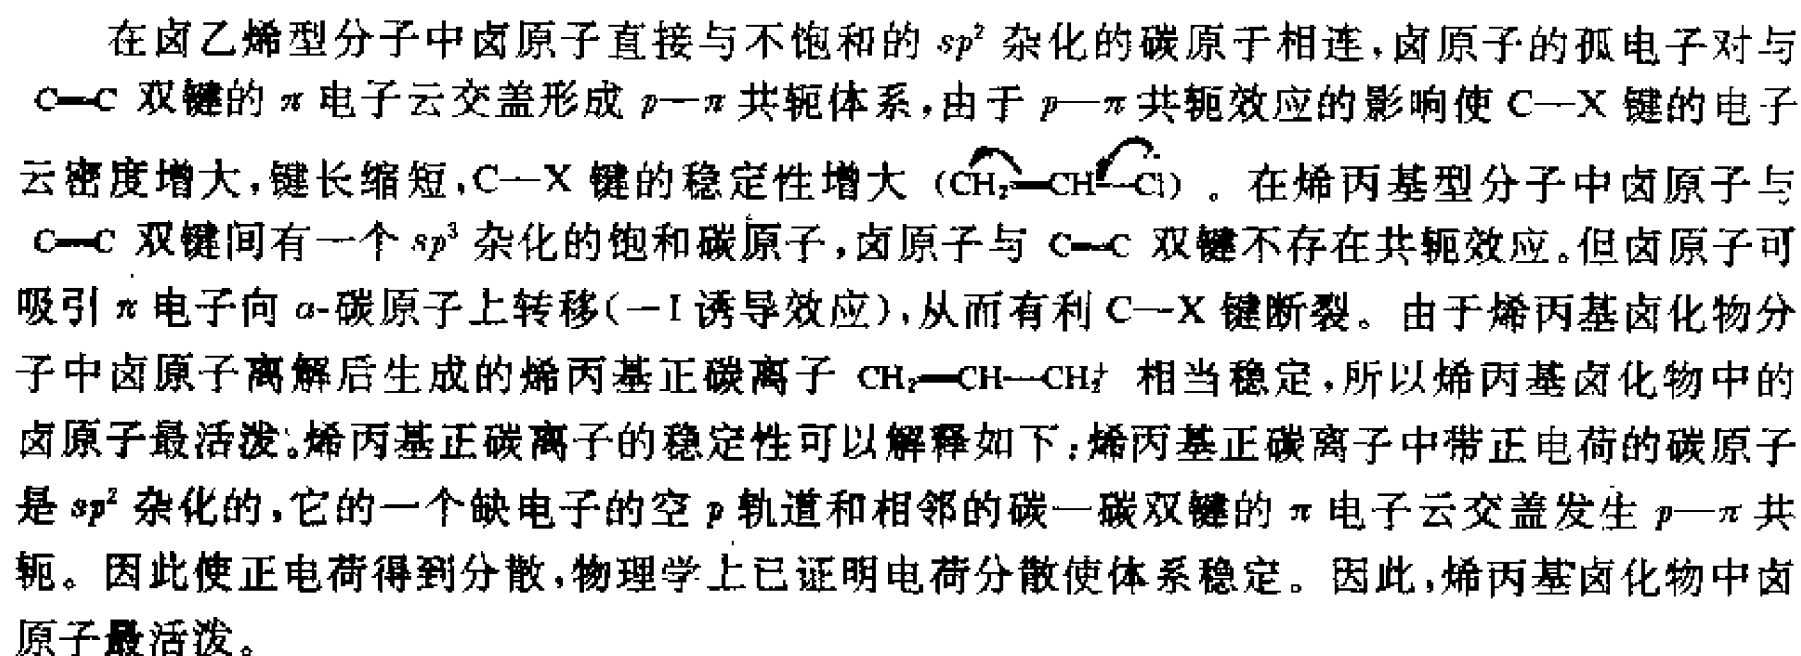 在卤乙烯型分子中卤原子直接与不饱和的 sp² 杂化的碳原于相连，卤原子的孤电子对与
C=C 双键的 π 电子云交盖形成 p—π 共轭体系，由于 p—π 共轭效应的影响使 C—X 键的电子
云密度增大，键长缩短，C—X 键的稳定性增大 (CH₂=CH—Cl) 。在烯丙基型分子中卤原子与
C=C 双键间有一个 sp³ 杂化的饱和碳原子，卤原子与 C=C 双键不存在共轭效应。但卤原子可
吸引 π 电子向 α-碳原子上转移(－I 诱导效应)，从而有利 C—X 键断裂。由于烯丙基卤化物分
子中卤原子离解后生成的烯丙基正碳离子 CH₂=CH—CH₂⁺ 相当稳定，所以烯丙基卤化物中的
卤原子最活泼。烯丙基正碳离子的稳定性可以解释如下：烯丙基正碳离子中带正电荷的碳原子
是 sp² 杂化的，它的一个缺电子的空 p 轨道和相邻的碳一碳双键的 π 电子云交盖发生 p—π 共
轭。因此使正电荷得到分散，物理学上已证明电荷分散使体系稳定。因此，烯丙基卤化物中卤
原子最活泼。